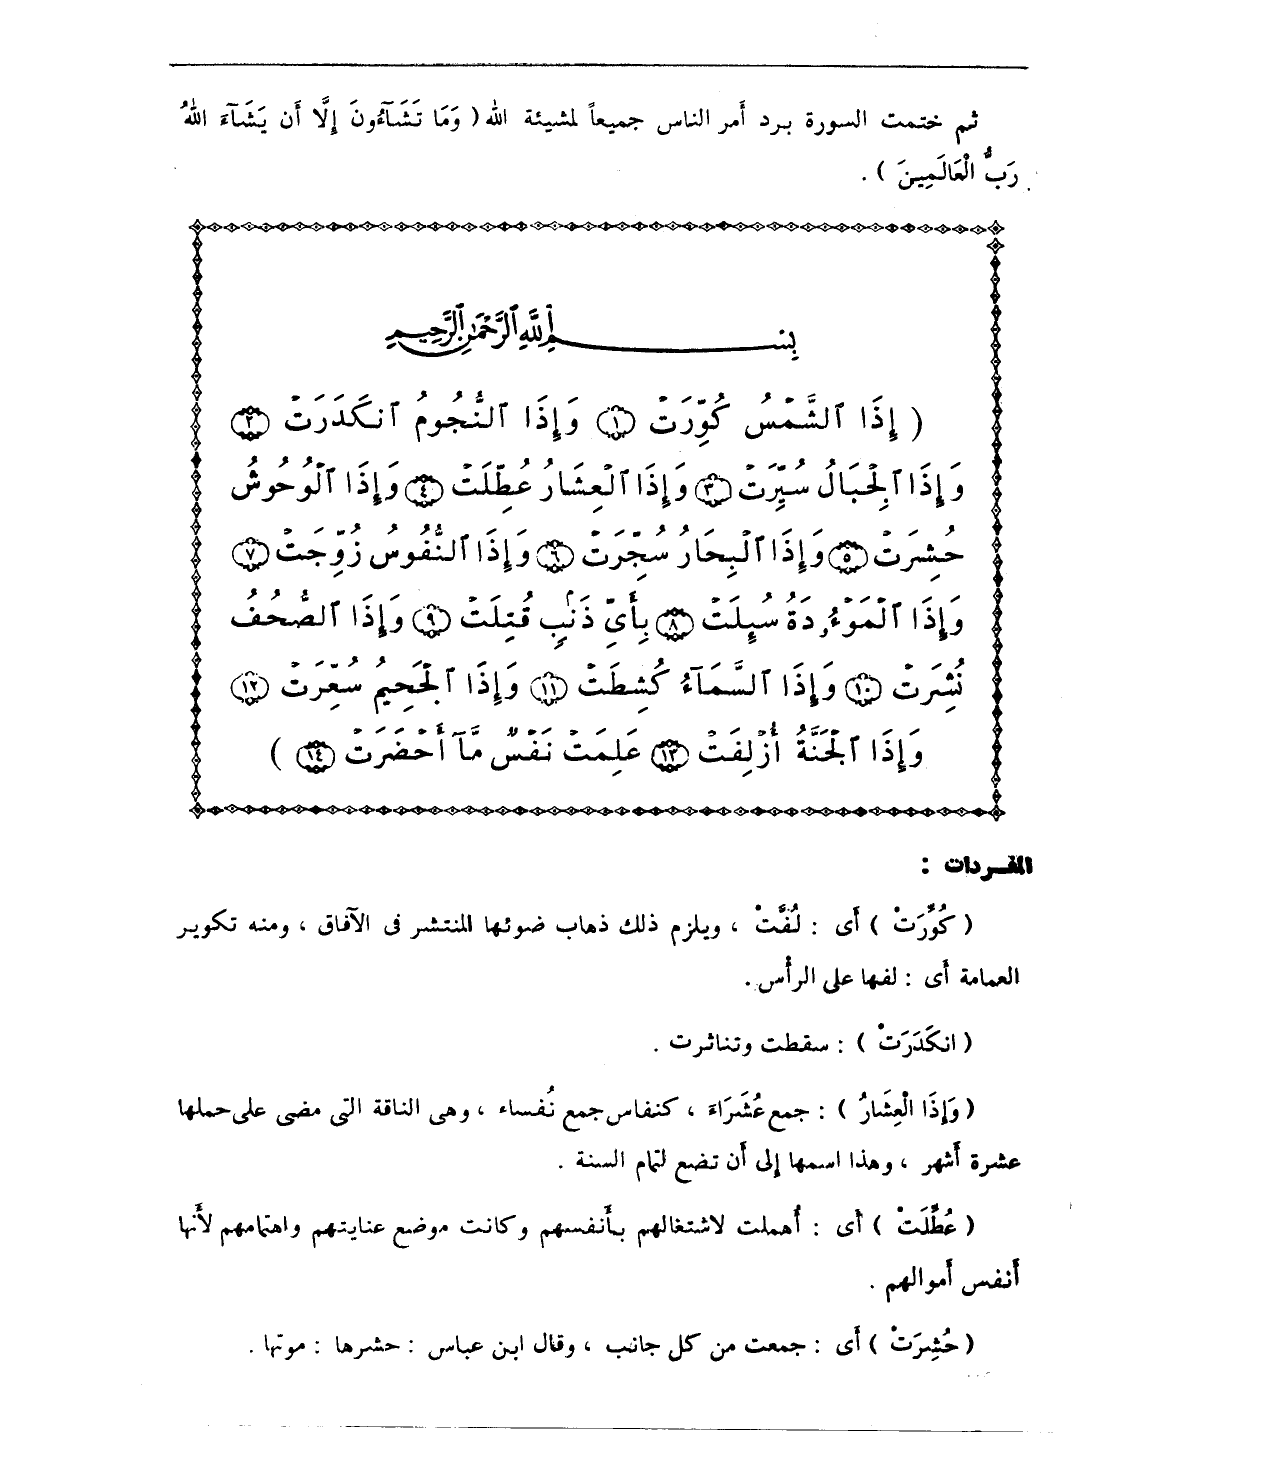 ثم ختمت السورة برد أمر الناس جميعاً لمشيئة الله ( وَمَا تَشَآءُونَ إِلَّا أَن يَشَآءَ اللهُ
رَبُّ الْعَالَمِينَ ) .
بِسْمِ ٱللَّهِ ٱلرَّحْمَٰنِ ٱلرَّحِيمِ
( إِذَا ٱلشَّمْسُ كُوِّرَتْ ۝١ وَإِذَا ٱلنُّجُومُ ٱنكَدَرَتْ ۝٢
وَإِذَا ٱلْجِبَالُ سُيِّرَتْ ۝٣ وَإِذَا ٱلْعِشَارُ عُطِّلَتْ ۝٤ وَإِذَا ٱلْوُحُوشُ
حُشِرَتْ ۝٥ وَإِذَا ٱلْبِحَارُ سُجِّرَتْ ۝٦ وَإِذَا ٱلنُّفُوسُ زُوِّجَتْ ۝٧
وَإِذَا ٱلْمَوْءُۥدَةُ سُئِلَتْ ۝٨ بِأَىِّ ذَنۢبٍ قُتِلَتْ ۝٩ وَإِذَا ٱلصُّحُفُ
نُشِرَتْ ۝١٠ وَإِذَا ٱلسَّمَآءُ كُشِطَتْ ۝١١ وَإِذَا ٱلْجَحِيمُ سُعِّرَتْ ۝١٢
وَإِذَا ٱلْجَنَّةُ أُزْلِفَتْ ۝١٣ عَلِمَتْ نَفْسٌ مَّآ أَحْضَرَتْ ۝١٤ )
المفردات :
( كُوِّرَتْ ) أى : لُفَّتْ ، ويلزم ذلك ذهاب ضوئها المنتشر فى الآفاق ، ومنه تكوير
العمامة أى : لفها على الرأس .
( انكَدَرَتْ ) : سقطت وتناثرت .
( وَإِذَا الْعِشَارُ ) : جمع عُشَرَاءَ ، كنفاس جمع نُفساء ، وهى الناقة التى مضى على حملها
عشرة أشهر ، وهذا اسمها إلى أن تضع لتمام السنة .
( عُطِّلَتْ ) أى : أُهملت لاشتغالهم بأنفسهم وكانت موضع عنايتهم واهتمامهم لأنها
أنفس أموالهم .
( حُشِرَتْ ) أى : جمعت من كل جانب ، وقال ابن عباس : حشرها : موتها .